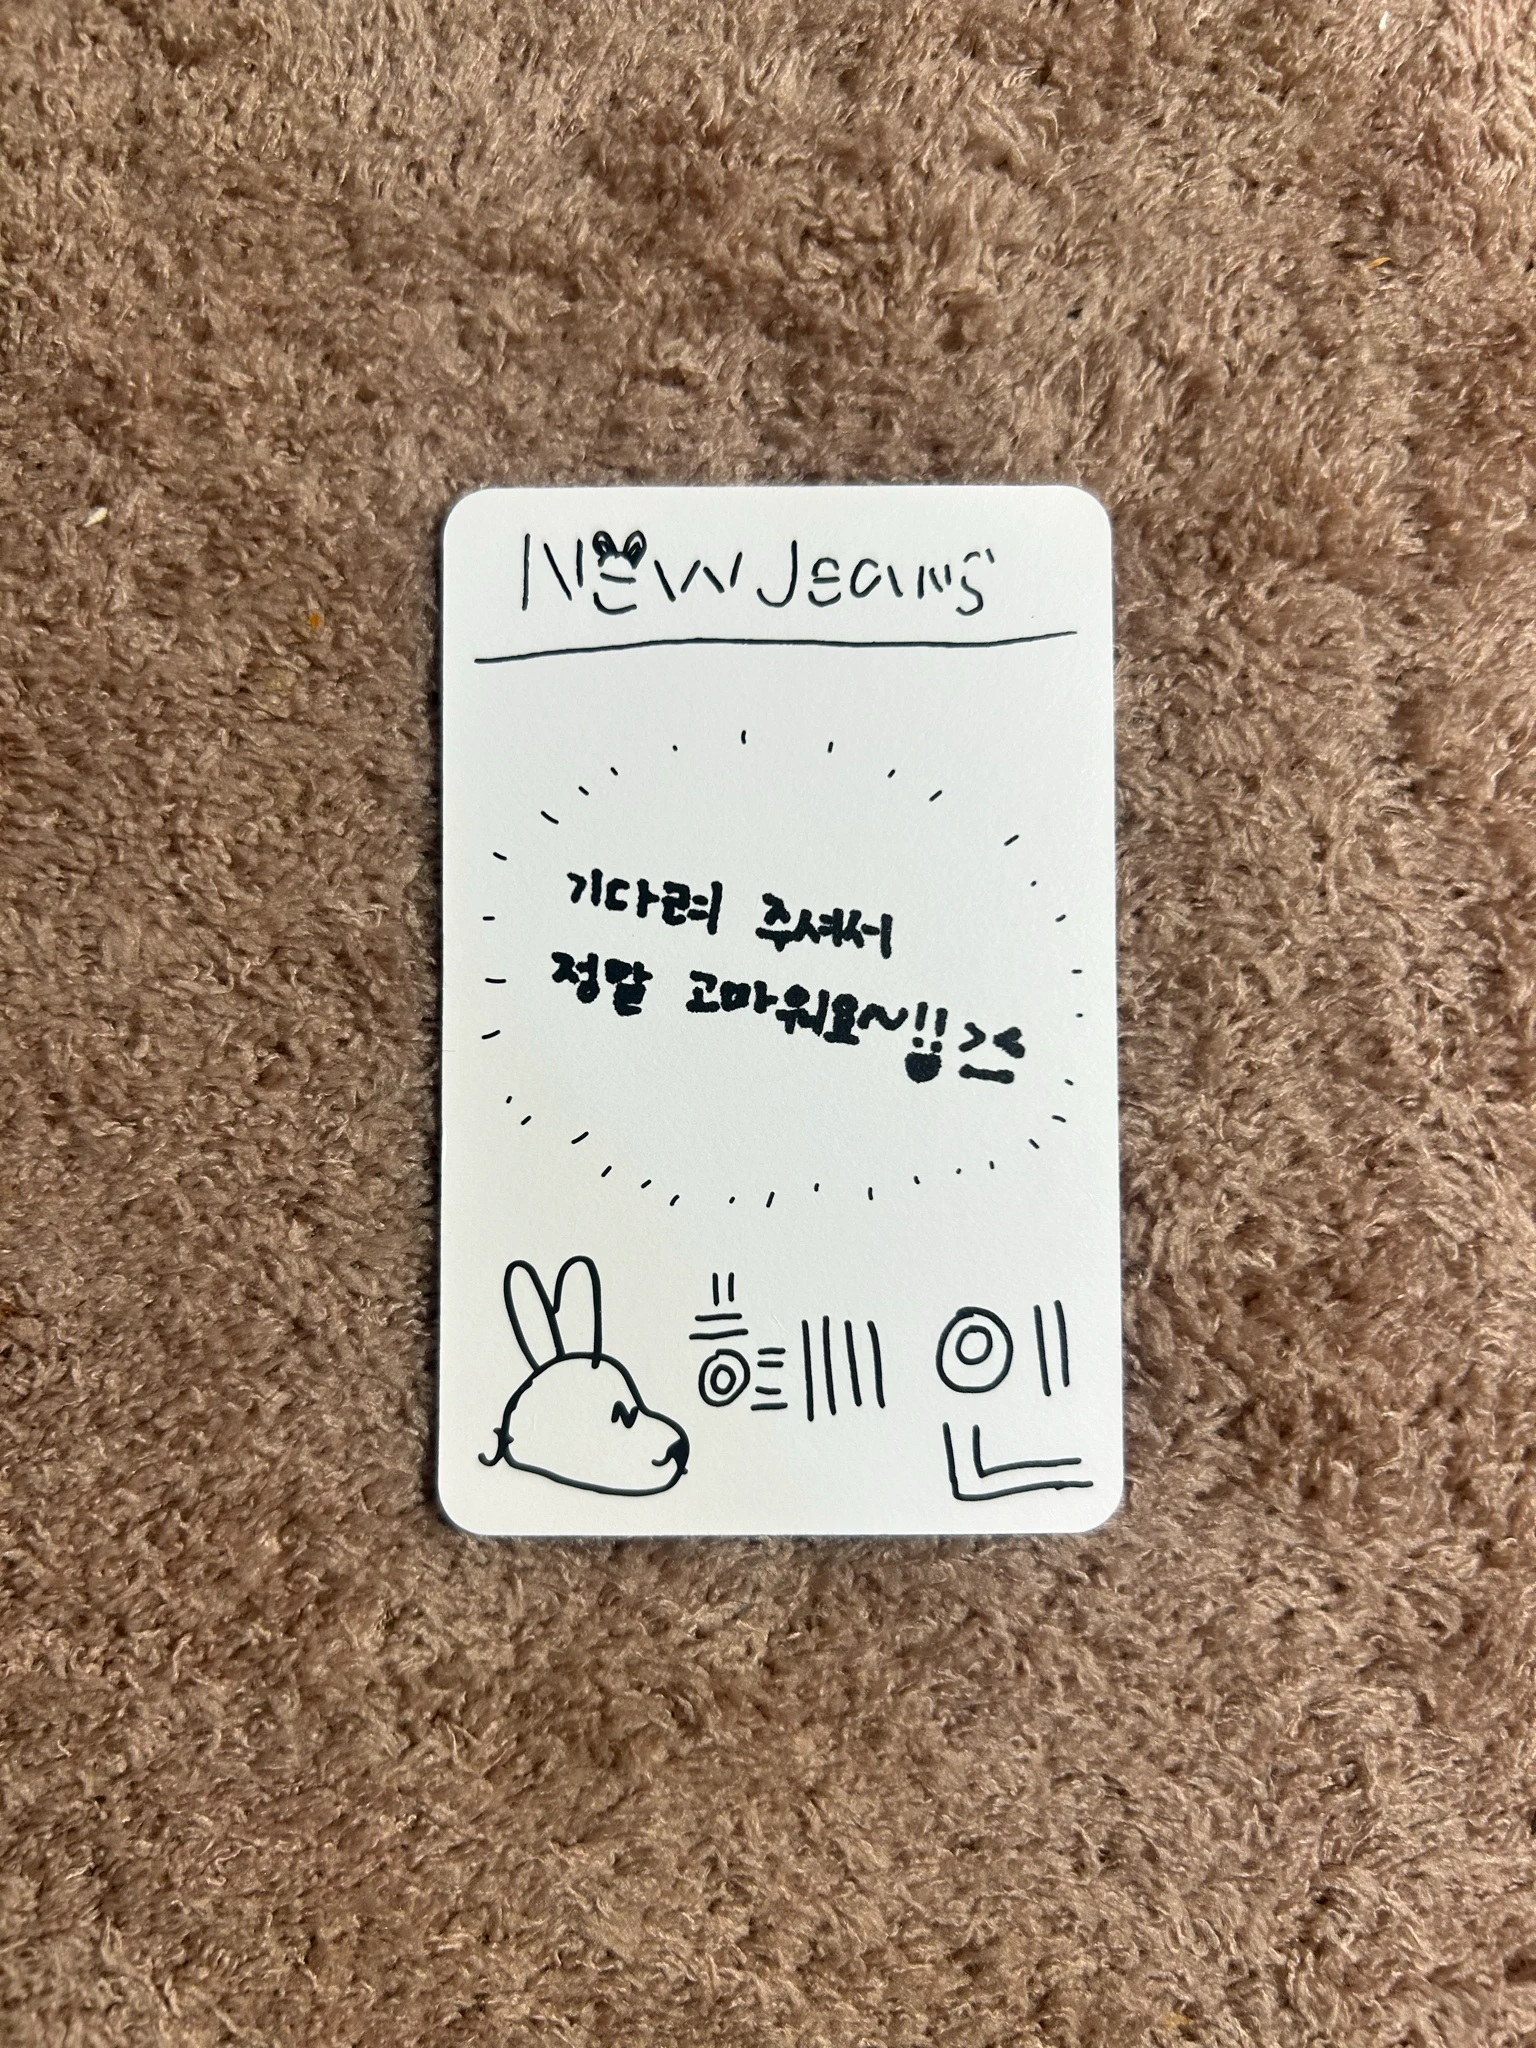 NewJeans
기다려 주셔서
정말 고마워요~!! >_<
혜인